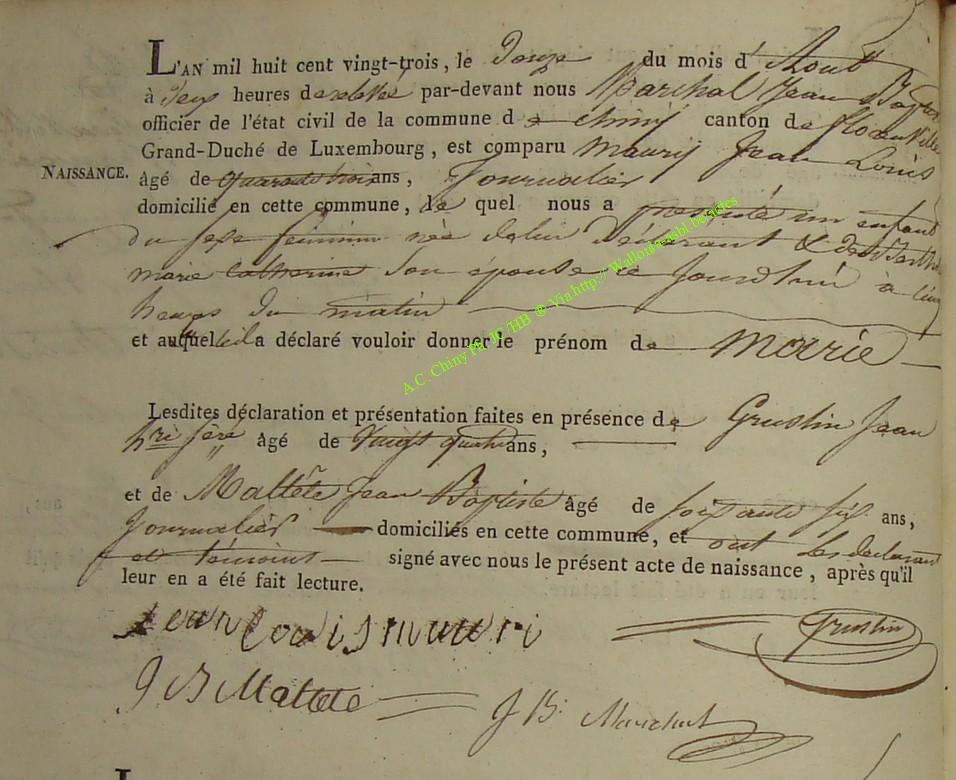 L'AN mil huit cent vingt-trois, le Douze du mois d' Aout
à Six heures de relevée par-devant nous Marchal Jean Baptiste
officier de l'état civil de la commune de chiny canton de florenville
Grand-Duché de Luxembourg, est comparu Maury Jean Louis
NAISSANCE.
âgé de quarante trois ans, Journalier
domicilié en cette commune, le quel nous a presenté un enfant
du sexe féminin née de lui Déclarant & de
marie catherine Son épouse ce Jourd'hui à cinq
heures du matin
et auquel il a déclaré vouloir donner le prénom de Marie
Lesdites déclaration et présentation faites en présence de Grustin Jean
âgé de Vingt quatre ans,
et de Maltête Jean Baptiste âgé de soixante six ans,
Journalier domiciliés en cette commune, et ont les declarant
et témoins signé avec nous le présent acte de naissance, après qu'il
leur en a été fait lecture.
Jean Louis Mauri
Grustin
J B Malteté
J B. Marchal
A.C. Chiny Ph. JC/HB © Via http:// Wallonica